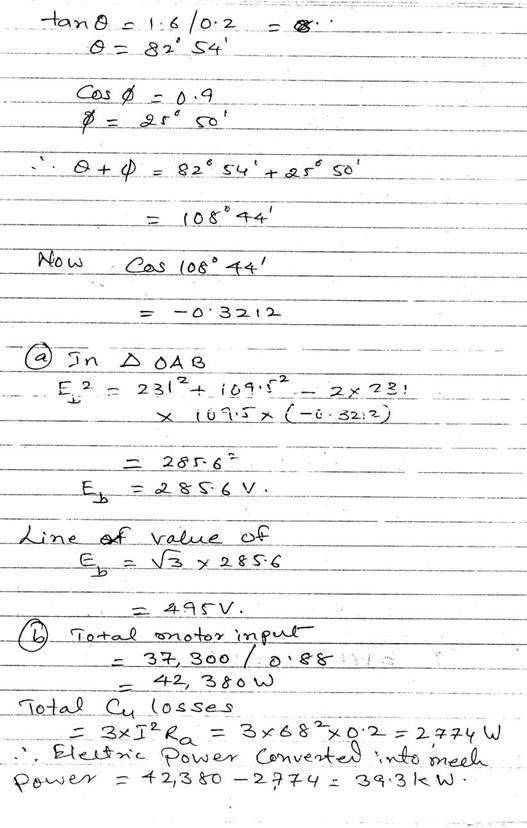 tanθ = 1.6/0.2 = 8..
θ = 82° 54'
Cos φ = 0.9
φ = 25° 50'
∴ θ + φ = 82° 54' + 25° 50'
= 108° 44'
Now Cos 108° 44'
= -0.3212
(a) In Δ OAB
E_b² = 231² + 109.5² - 2 × 231
× 109.5 × (-0.3212)
= 285.6²
E_b = 285.6 V.
Line of value of
E_b = √3 × 285.6
= 495V.
(b) Total motor input
= 37,300 / 0.88
= 42,380 W
Total Cu losses
= 3×I²Ra = 3×68²×0.2 = 2774 W
∴ Electric Power Converted into mech
Power = 42,380 - 2,774 = 39.3 kW.